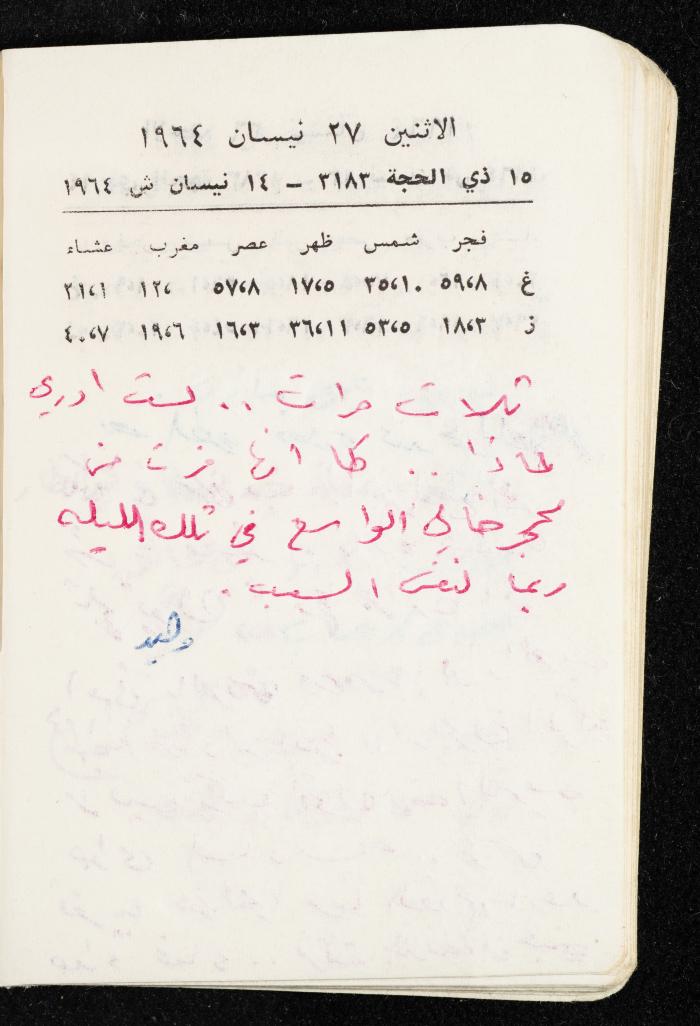 الاثنين ٢٧ نيسان ١٩٦٤
١٥ ذي الحجة ٣١٨٣ – ١٤ نيسان ش ١٩٦٤
فجر شمس ظهر عصر مغرب عشاء
غ ٥٩،٨ ٣٥،١٠ ١٧،٥ ٥٧،٨ ١٢، ٢١،١
ز ١٨،٣ ٥٣،٥ ٣٦،١١ ١٦،٣ ١٩،٦ ٤٠،٧
ثلاث مرات .. لست ادري
لماذا .. كما انها فرت من
محجر خالي الواسع في تلك الليله
ربما لنفس السبب .
وليد